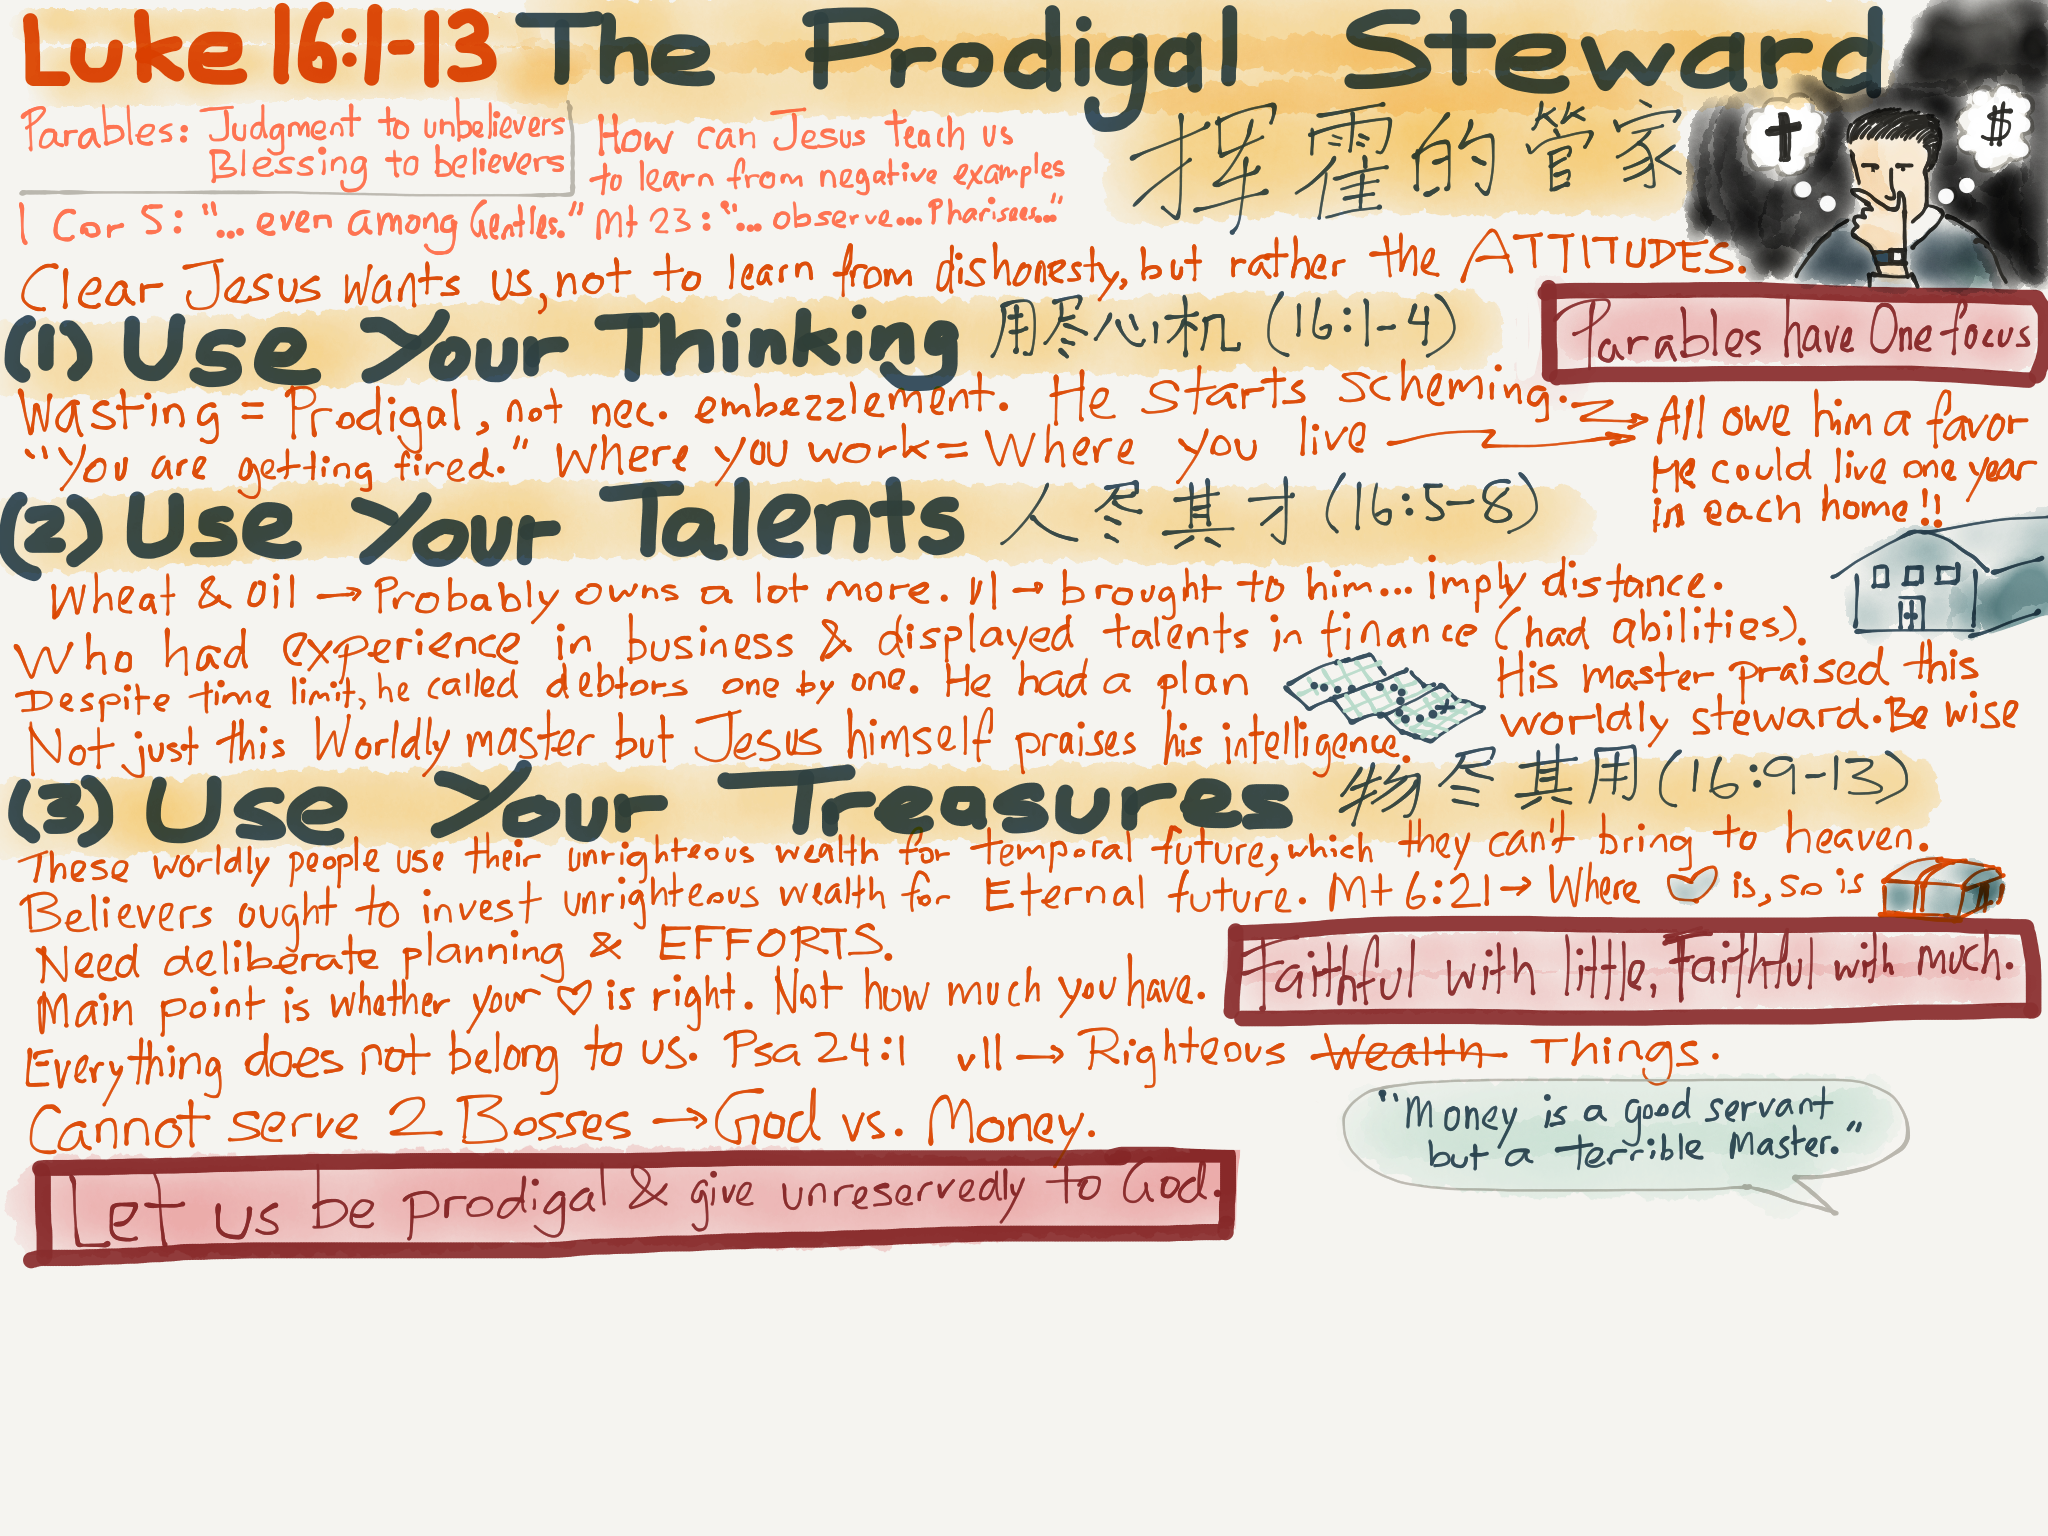 Luke 16:1-13 The Prodigal Steward
挥霍的管家
Parables: Judgment to unbelievers
Blessing to believers
How can Jesus teach us
to learn from negative examples
1 Cor 5: "... even among Gentles." Mt 23: "... observe... Pharisees..."
Clear Jesus wants us, not to learn from dishonesty, but rather the ATTITUDES.
Parables have One focus
(1) Use Your Thinking 用尽心机 (16:1-4)
Wasting = Prodigal, not nec. embezzlement. He starts scheming.
"You are getting fired." Where you work = Where you live
All owe him a favor
He could live one year
in each home!!
(2) Use Your Talents 人尽其才 (16:5-8)
Wheat & Oil → Probably owns a lot more. v1 → brought to him... imply distance.
Who had experience in business & displayed talents in finance (had abilities).
Despite time limit, he called debtors one by one. He had a plan
Not just this Worldly master but Jesus himself praises his intelligence.
His master praised this
worldly steward. Be wise
(3) Use Your Treasures 物尽其用 (16:9-13)
These worldly people use their unrighteous wealth for temporal future, which they can't bring to heaven.
Believers ought to invest unrighteous wealth for Eternal future. Mt 6:21 → Where ♡ is, so is
Need deliberate planning & EFFORTS.
Main point is whether your ♡ is right. Not how much you have.
Faithful with little, Faithful with much.
Everything does not belong to us. Psa 24:1 v11 → Righteous Wealth Things.
Cannot serve 2 Bosses → God vs. Money.
"Money is a good servant
but a terrible Master."
Let us be prodigal & give unreservedly to God.